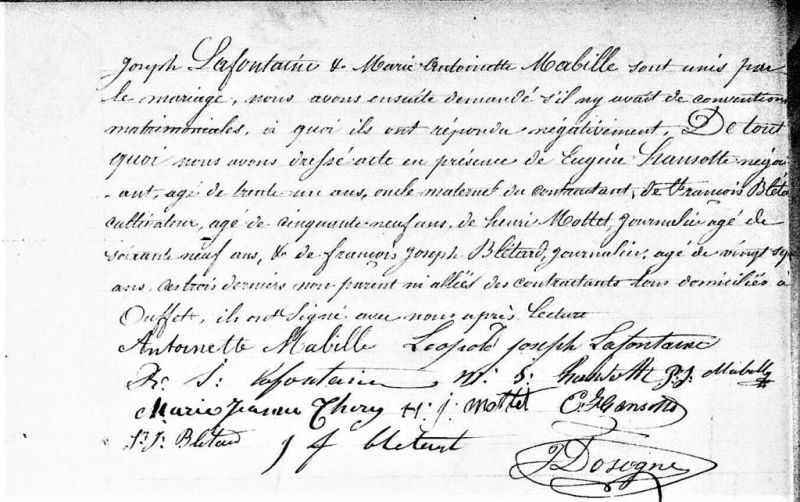 Joseph Lafontaine & Marie Antoinette Mabille sont unis par
le mariage, nous avons ensuite demandé s'il ny avait de conventions
matrimoniales, à quoi ils ont répondu négativement. De tout
quoi nous avons dressé acte en présence de Eugène hansotte négoci
-ant, agé de trente un ans, oncle maternel du contractant, de François Blétard
cultivateur, agé de cinquante neuf ans, de henri Mottet, Journalier agé de
soixante neuf ans, & de françois Joseph Blétard, Journalier, agé de vingt sept
ans, ces trois derniers non parent ni alliés des contractants tous domiciliés à
Ouffet, ils ont Signé avec nous après Lecture
Antoinette Mabille Léopold Joseph Lafontaine
J: Lafontaine m: j: hansotte J. J. Mabille
Marie Jeanne Thery H: j: mottet E. Hansotte
Fr: J: Blétard j f bletard
J Dosogne